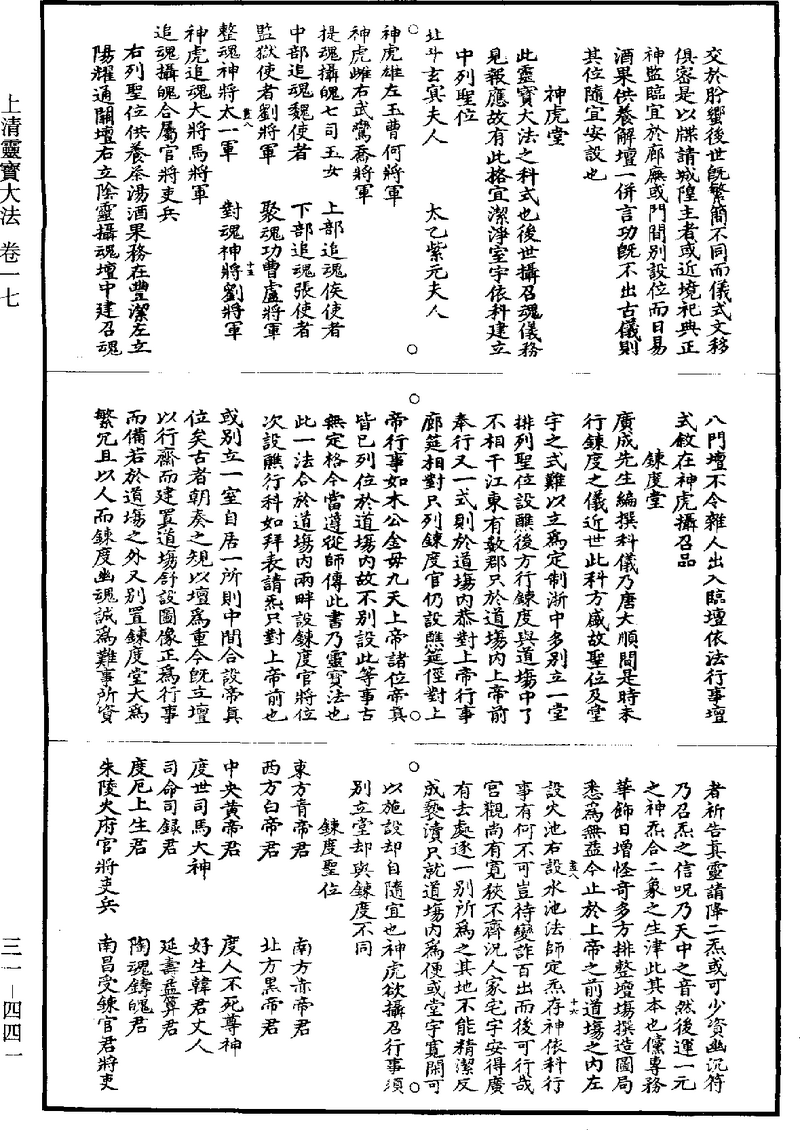 交於肸蠁後世旣繁簡不同而儀式文移
俱密是以牒請城隍主者或近境祀典正
神監臨宜於廊廡或門間別設位而日易
酒果供養解壇一併言功旣不出古儀則
其位隨宜安設也
神虎堂
此靈寶大法之科式也後世攝召魂儀務
見報應故有此格宜潔淨室宇依科建立
中列聖位
北斗玄冥夫人　太乙紫元夫人
神虎雄左玉曹何將軍
神虎雌右武鸞喬將軍
提魂攝魄七司玉女　上部追魂侯使者
中部追魂魏使者　下部追魂張使者
監獄使者劉將軍　聚魂功曹盧將軍
整魂神將太一軍　對魂神將劉將軍
神虎追魂大將馬將軍
追魂攝魄合屬官將吏兵
右列聖位供養茶湯酒果務在豐潔左立
陽耀通關壇右立陰靈攝魂壇中建召魂
八門壇不令雜人出入臨壇依法行事壇
式敘在神虎攝召品
鍊度堂
廣成先生編撰科儀乃唐大順間是時未
行鍊度之儀近世此科方盛故聖位及堂
宇之式難以立爲定制淅中多別立一堂
排列聖位設醮後方行鍊度與道場中了
不相干江東有數郡只於道場內上帝前
奉行又一式則於道場內恭對上帝行事
廊筵相對只列鍊度官仍設醮筵徑對上
帝行事如木公金母九天上帝諸位帝眞
皆已列位於道場內故不別設此等事古
無定格今當遵從師傳此書乃靈寶法也
此一法合於道場內兩畔設鍊度官將位
次設醮行科如拜表請炁只對上帝前也
或別立一室自居一所則中間合設帝眞
位矣古者朝奏之規以壇爲重今旣立壇
以行齋而建置道場舒設圖像正爲行事
而備若於道場之外又別置鍊度堂大爲
繁冗且以人而鍊度幽魂誠爲難事所資
者祈告眞靈請降二炁或可少資幽沉符
乃召炁之信呪乃天中之音然後運一元
之神炁合二象之生津此其本也儻專務
華飾日增怪奇多方排整壇場撰造圖局
悉爲無益今止於上帝之前道場之內左
設火池右設水池法師定炁存神依科行
事有何不可豈待變詐百出而後可行哉
宮觀尚有寬狹不齊況人家宅宇安得廣
有去處逐一別所爲之其地不能精潔反
成褻瀆只就道場內爲便或堂宇寬閑可
以施設却自隨宜也神虎欲攝召行事須
別立堂却與鍊度不同
鍊度聖位
東方青帝君　南方赤帝君
西方白帝君　北方黑帝君
中央黃帝君　度人不死尊神
度世司馬大神　好生韓君丈人
司命司錄君　延壽益筭君
度厄上生君　陶魂鑄魄君
朱陵火府官將吏兵　南昌受鍊官君將吏
上清靈寶大法　卷一七
三一－四四一